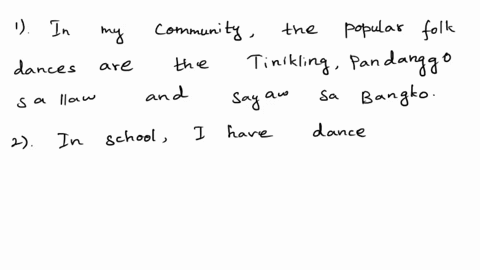 1). In my community, the popular folk
dances are the Tinikling, Pandanggo
sa llaw and sayaw sa Bangko.
2). In school, I have dance